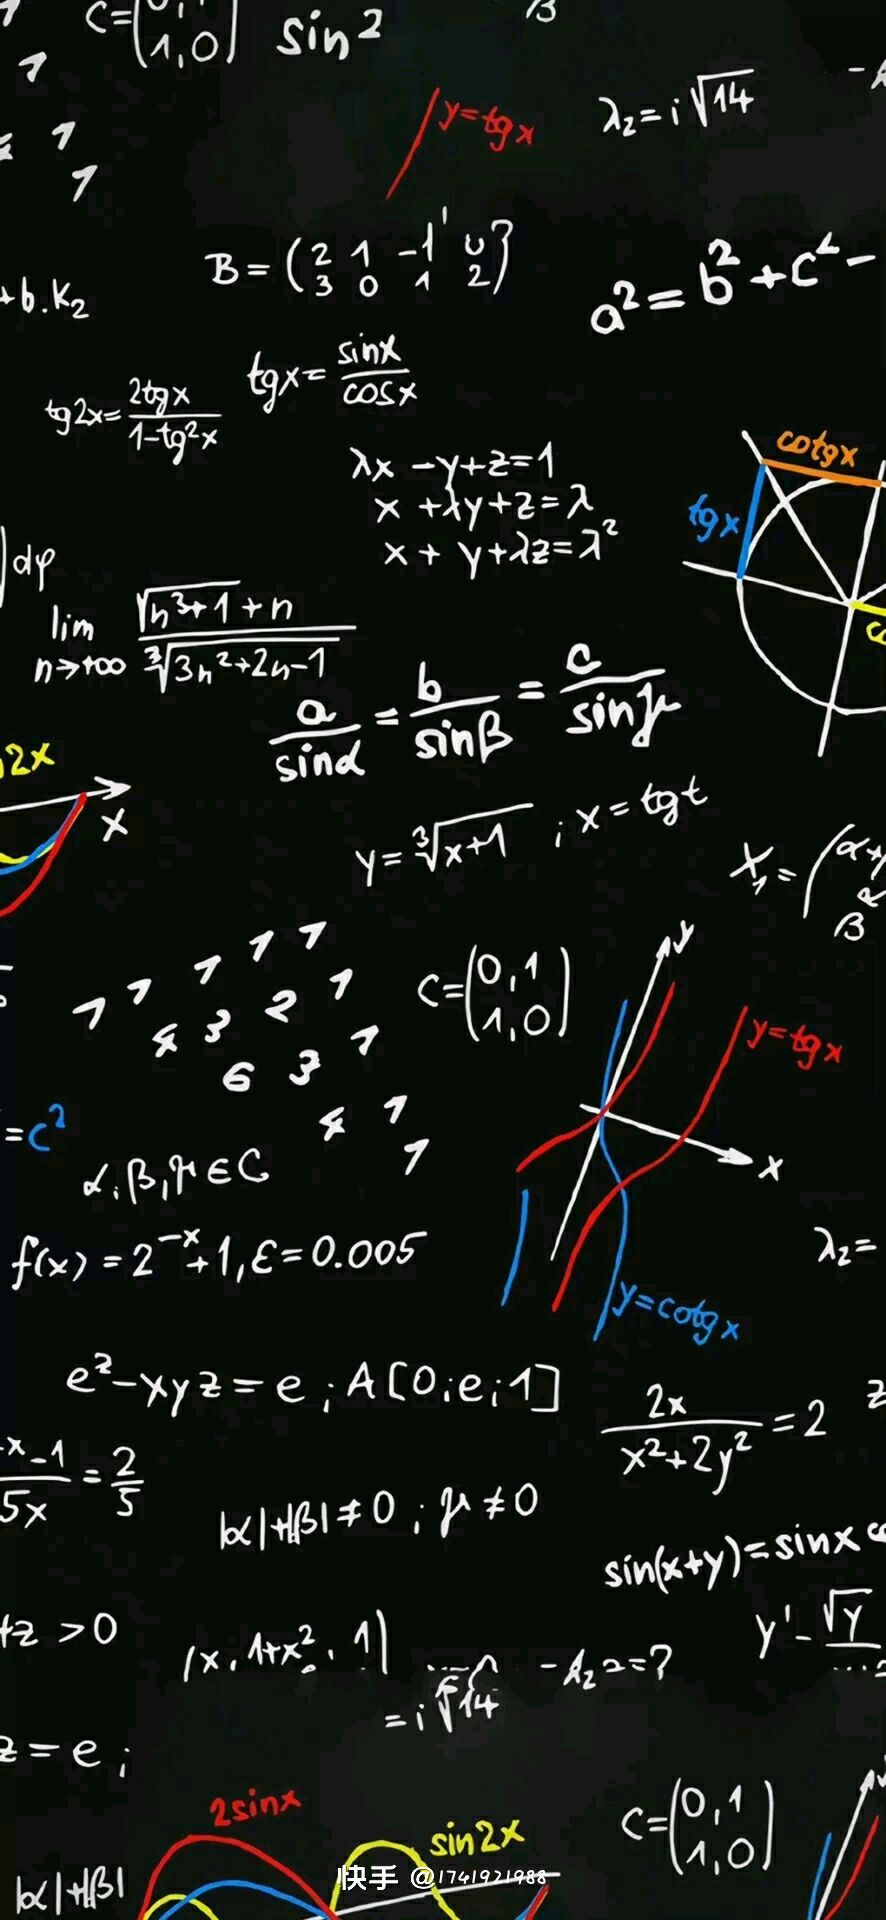 C=(0,1
1,0)
sin2
β
1
y=tgx
λ₂=i√14
1
1
B=(2 1 -1 0
3 0 1 2)
+b.K₂
a²=b²+c²-
tgx=sinx/cosx
tg2x=2tgx/1-tg²x
cotgx
tgx
λx-y+z=1
x+λy+z=λ
x+y+λz=λ²
dφ
lim n→+∞ √n³+1+n/∛3n²+2n-1
a/sinα=b/sinβ=c/sinγ
2x
x
y=∛x+1 ; x=tgt
X₁=(α+
β
1 1 1 1 1
4 3 2 1
6 3 1
4 1
1
C=(0,1
1,0)
y
y=tgx
x
=c²
α,β,γ∈C
f(x)=2⁻ˣ+1,ε=0.005
λ₂=
y=cotgx
eᶻ-xyz=e;A[0;e;1]
2x/x²+2y²=2
z
x-1/5x=2/5
|α|+|β|≠0;γ≠0
sin(x+y)=sinx
+z>0
(x,1+x²,1)
=?
y'-√y
=i√14
z=e;
2sinx
sin2x
C=(0,1
1,0)
|α|+|β|
快手 @1741921988